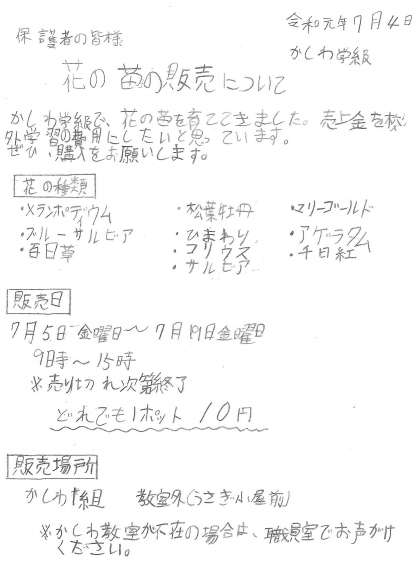 令和元年7月4日
保護者の皆様
かしわ学級
花の苗の販売について
かしわ学級で、花の苗を育ててきました。売上金を校
外学習の費用にしたいと思っています。
ぜひ、購入をお願いします。
花の種類
・メランポディウム ・松葉牡丹 ・マリーゴールド
・ブルーサルビア ・ひまわり ・アゲラタム
・百日草 ・コリウス ・千日紅
・サルビア
販売日
7月5日金曜日〜7月19日金曜日
9時〜15時
※売り切れ次第終了
どれでも1ポット 10円
販売場所
かしわ組 教室外(うさぎ小屋前)
※かしわ教室が不在の場合は、職員室でお声がけ
ください。